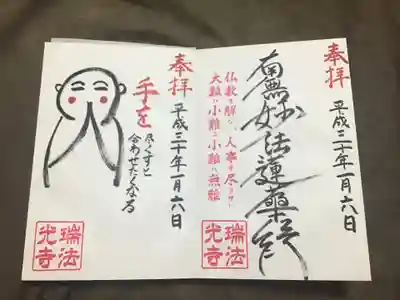 奉拝
平成三十年一月六日
南無妙法蓮華経
人事を尽
大難ハ小難ニ小難ハ無難
瑞法
光寺
奉拝
平成三十年一月六日
手を
尽くすと
合わせたくなる
瑞法
光寺